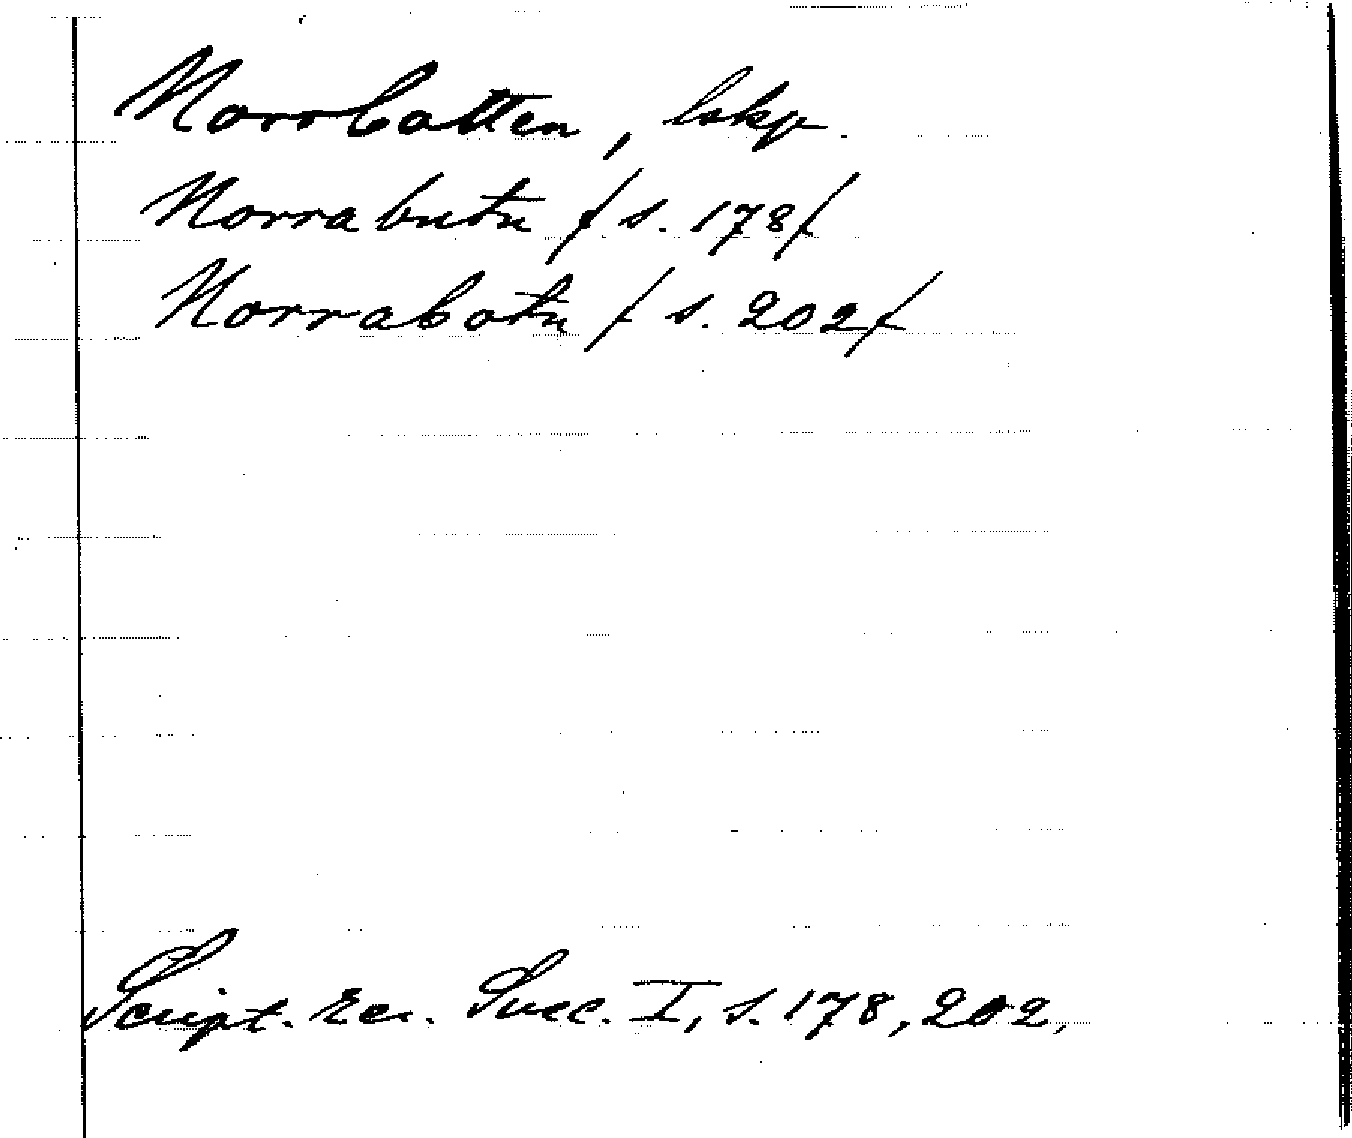 Norrbotten, lskp.
Norra butn / s. 178/
Norrabotn / s. 202/
Script. rer. Svec. I, s. 178, 202,